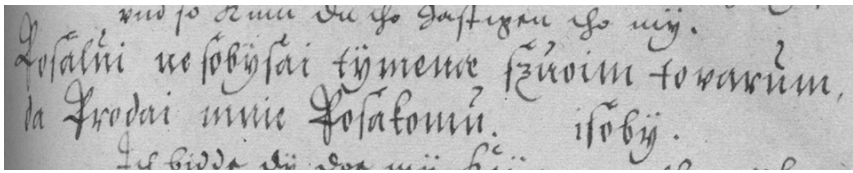 vnd so Kum du tho gastigen tho mÿ.
Posalui ne sobÿsai tÿmene szuoim tovarum,
da Prodai mnie Posakomu. isobÿ.
Ich bidde dÿ doe mÿ